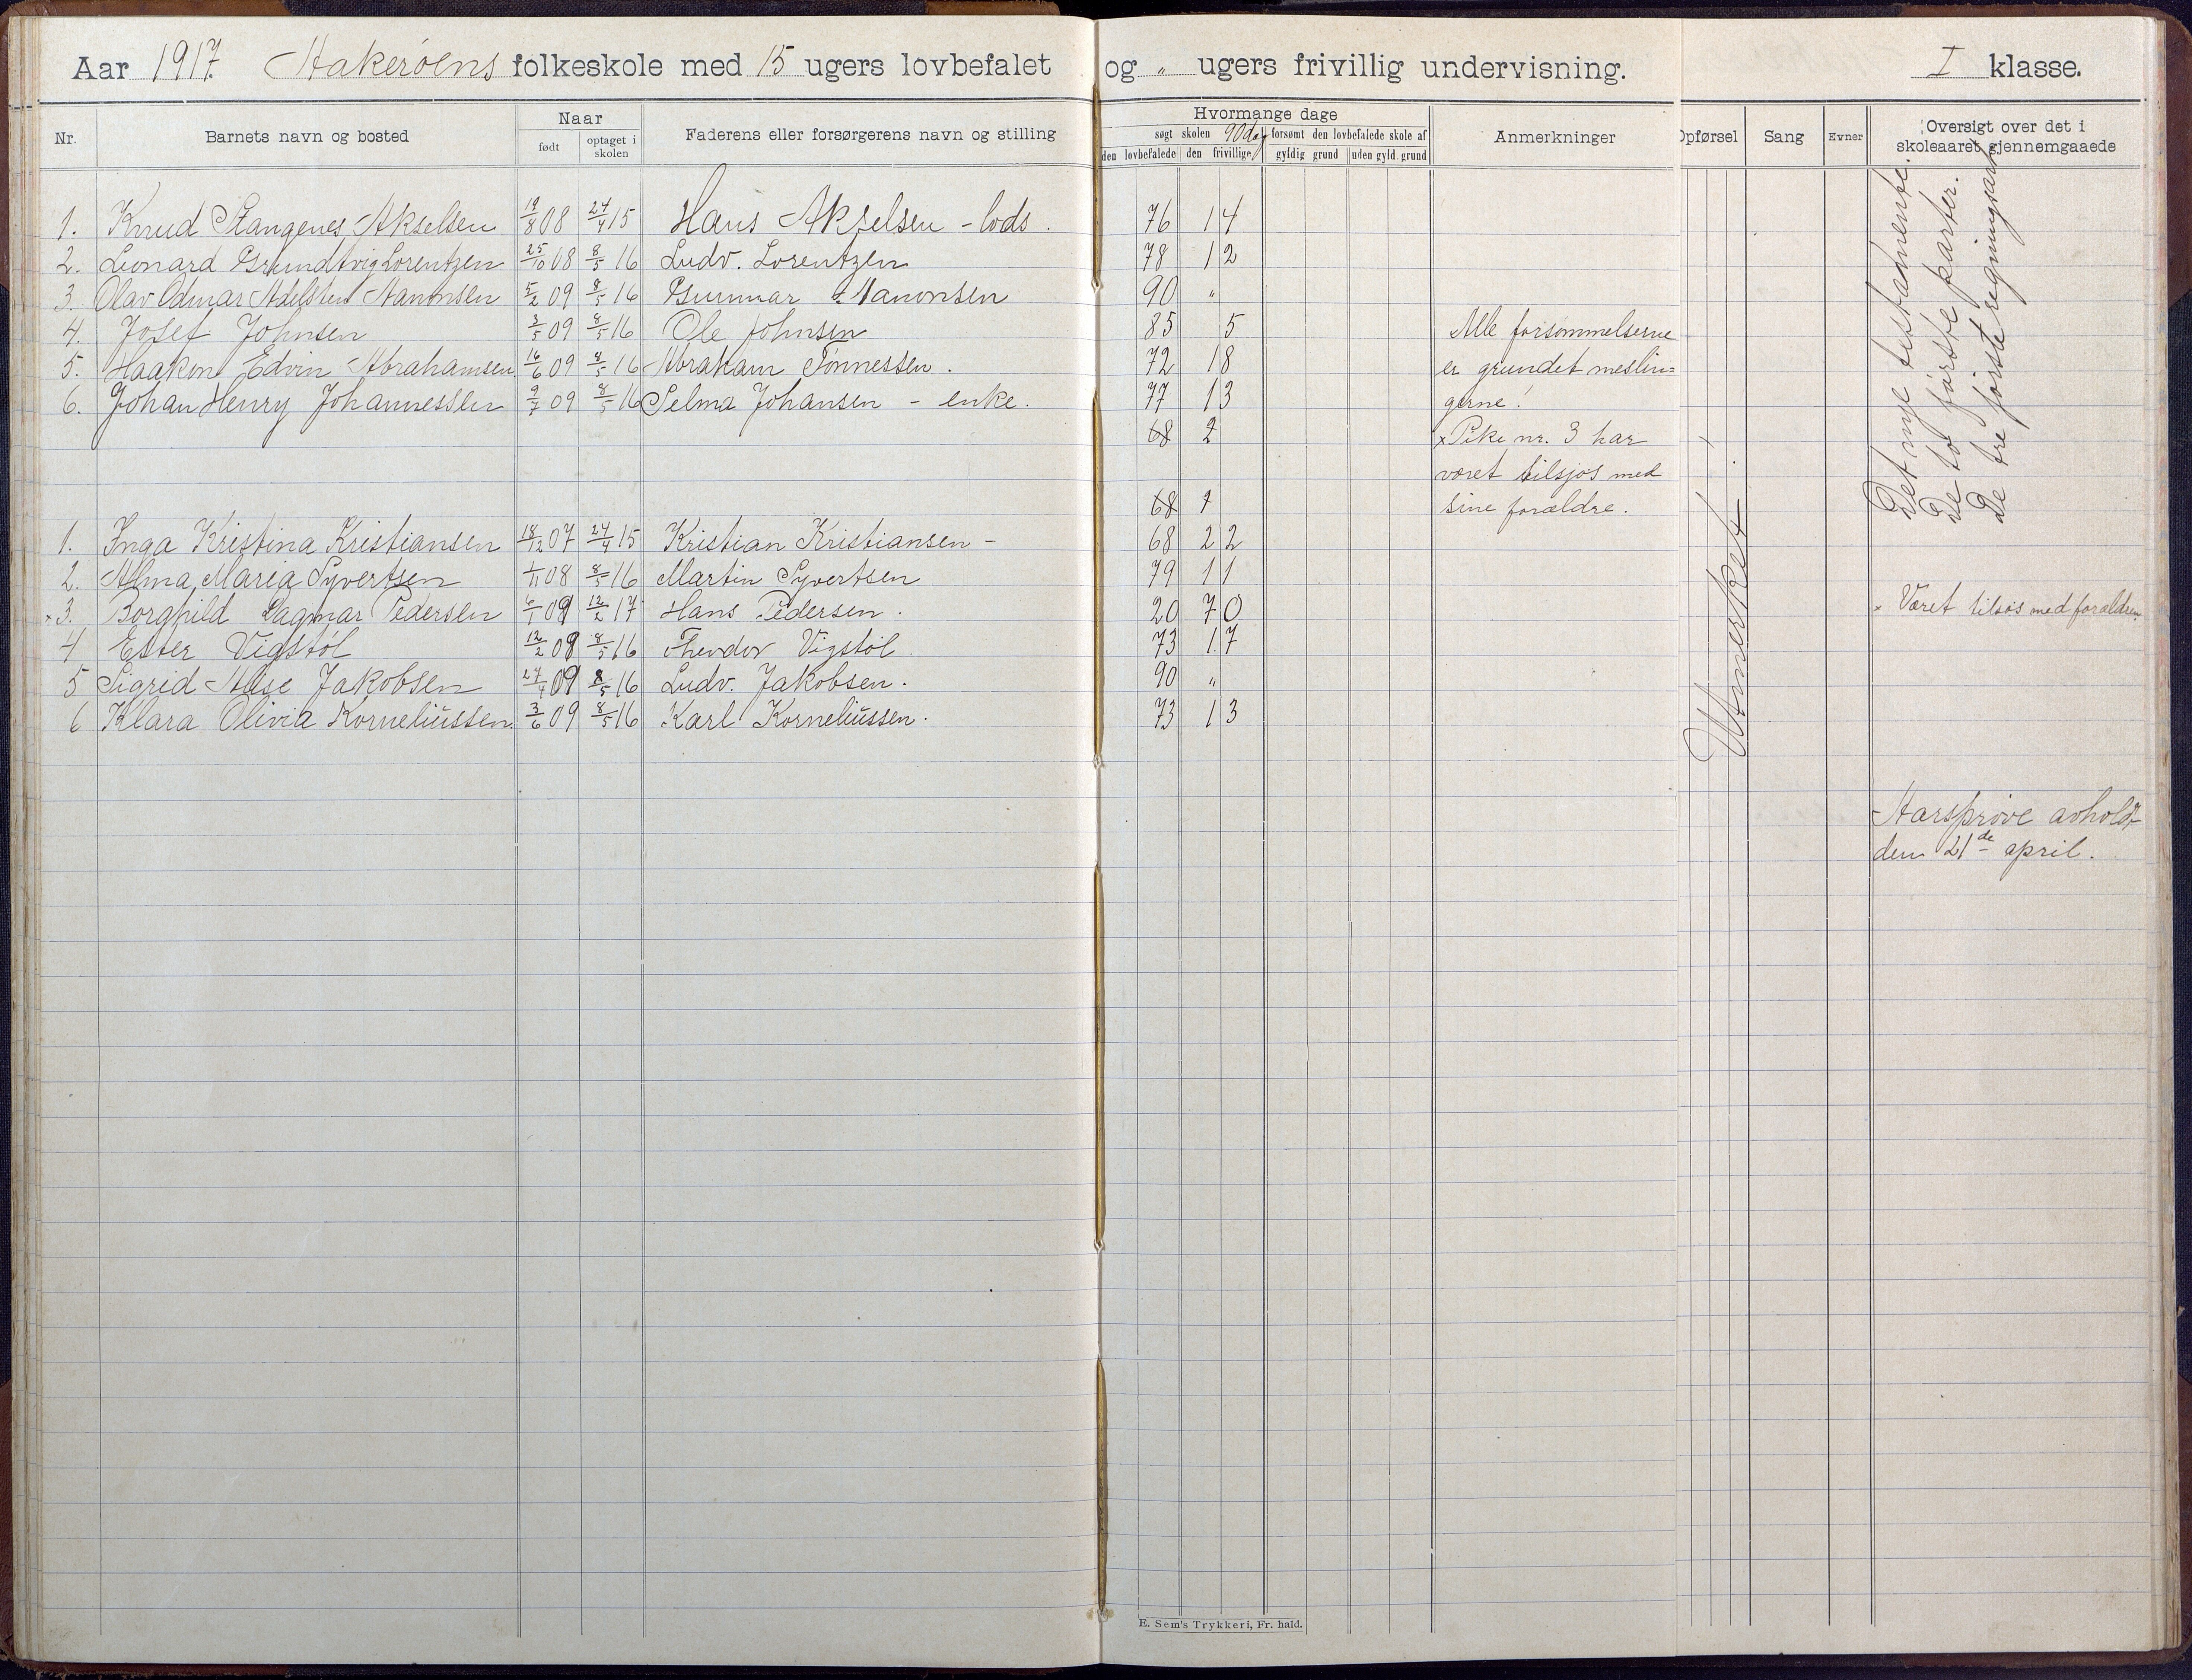 Aar 1917. Hakerøens folkeskole med 15 ugers lovbefalet og " ugers frivillig undervisning. I klasse.
Nr. Barnets navn og bosted Naar født optaget i skolen Faderens eller forsørgerens navn og stilling Hvormange dage søgt skolen 90 dag forsømt den lovbefalede skole af den lovbefalede den frivillige gyldig grund uden gyld. grund Anmerkninger Opførsel Sang Evner Oversigt over det i skoleaaret gjennemgaaede
1. Knud Stangenes Akselsen 19/8 08 24/4 15 Hans Akselsen - lods. 76 14
2. Leonard Grundtvig Lorentzen 25/10 08 8/5 16 Ludv. Lorentzen 78 12
3. Olav Odmar Adelsten Nanonsen 5/2 09 8/5 16 Gunnar Nanonsen 90 "
4. Josef Johnsen 3/5 09 8/5 16 Ole Johnsen 85 5 Alle forsømmelserne
5. Haakon Edvin Abrahamsen 16/6 09 8/5 16 Abraham Tønnessen. 72 18 er grundet meslin=
6. Johan Henry Johannessen 9/7 09 8/5 16 Selma Johansen - enke. 77 13 gerne!
68 2 x Pike nr. 3 har
været tilsjøs med
68 1 sine forældre.
1. Inga Kristina Kristiansen 18/12 07 24/4 15 Kristian Kristiansen - 68 22
2. Alma Maria Syvertsen 1/11 08 8/5 16 Martin Syvertsen 79 11
x3. Borghild Dagmar Pedersen 6/1 09 12/2 17 Hans Pedersen. 20 70 x Været tilsøs med forældren.
4 Ester Vigstøl 12/2 09 8/5 16 Theodor Vigstøl. 73 17
5 Sigrid Alise Jakobsen 27/4 09 8/5 16 Ludv. Jakobsen. 90 "
6 Klara Olivia Korneliussen. 3/6 09 8/5 16 Karl Korneliussen. 73 13
Utmerket
Det nye testamente
De to første parter.
De tre første regningsarter
Aarsprøve avholdt
den 21de april.
E. Sem's Trykkeri, Fr. hald.